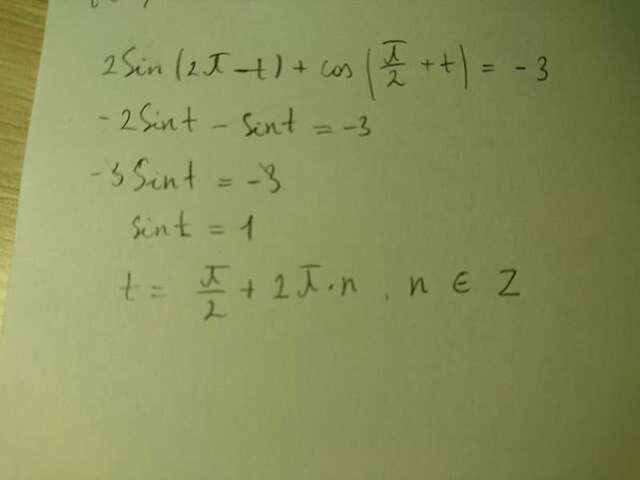 2Sin(2π-t)+cos(π/2+t)=-3
-2Sint-sint=-3
-3Sint=-3
sint=1
t=π/2+2π·n, n∈Z